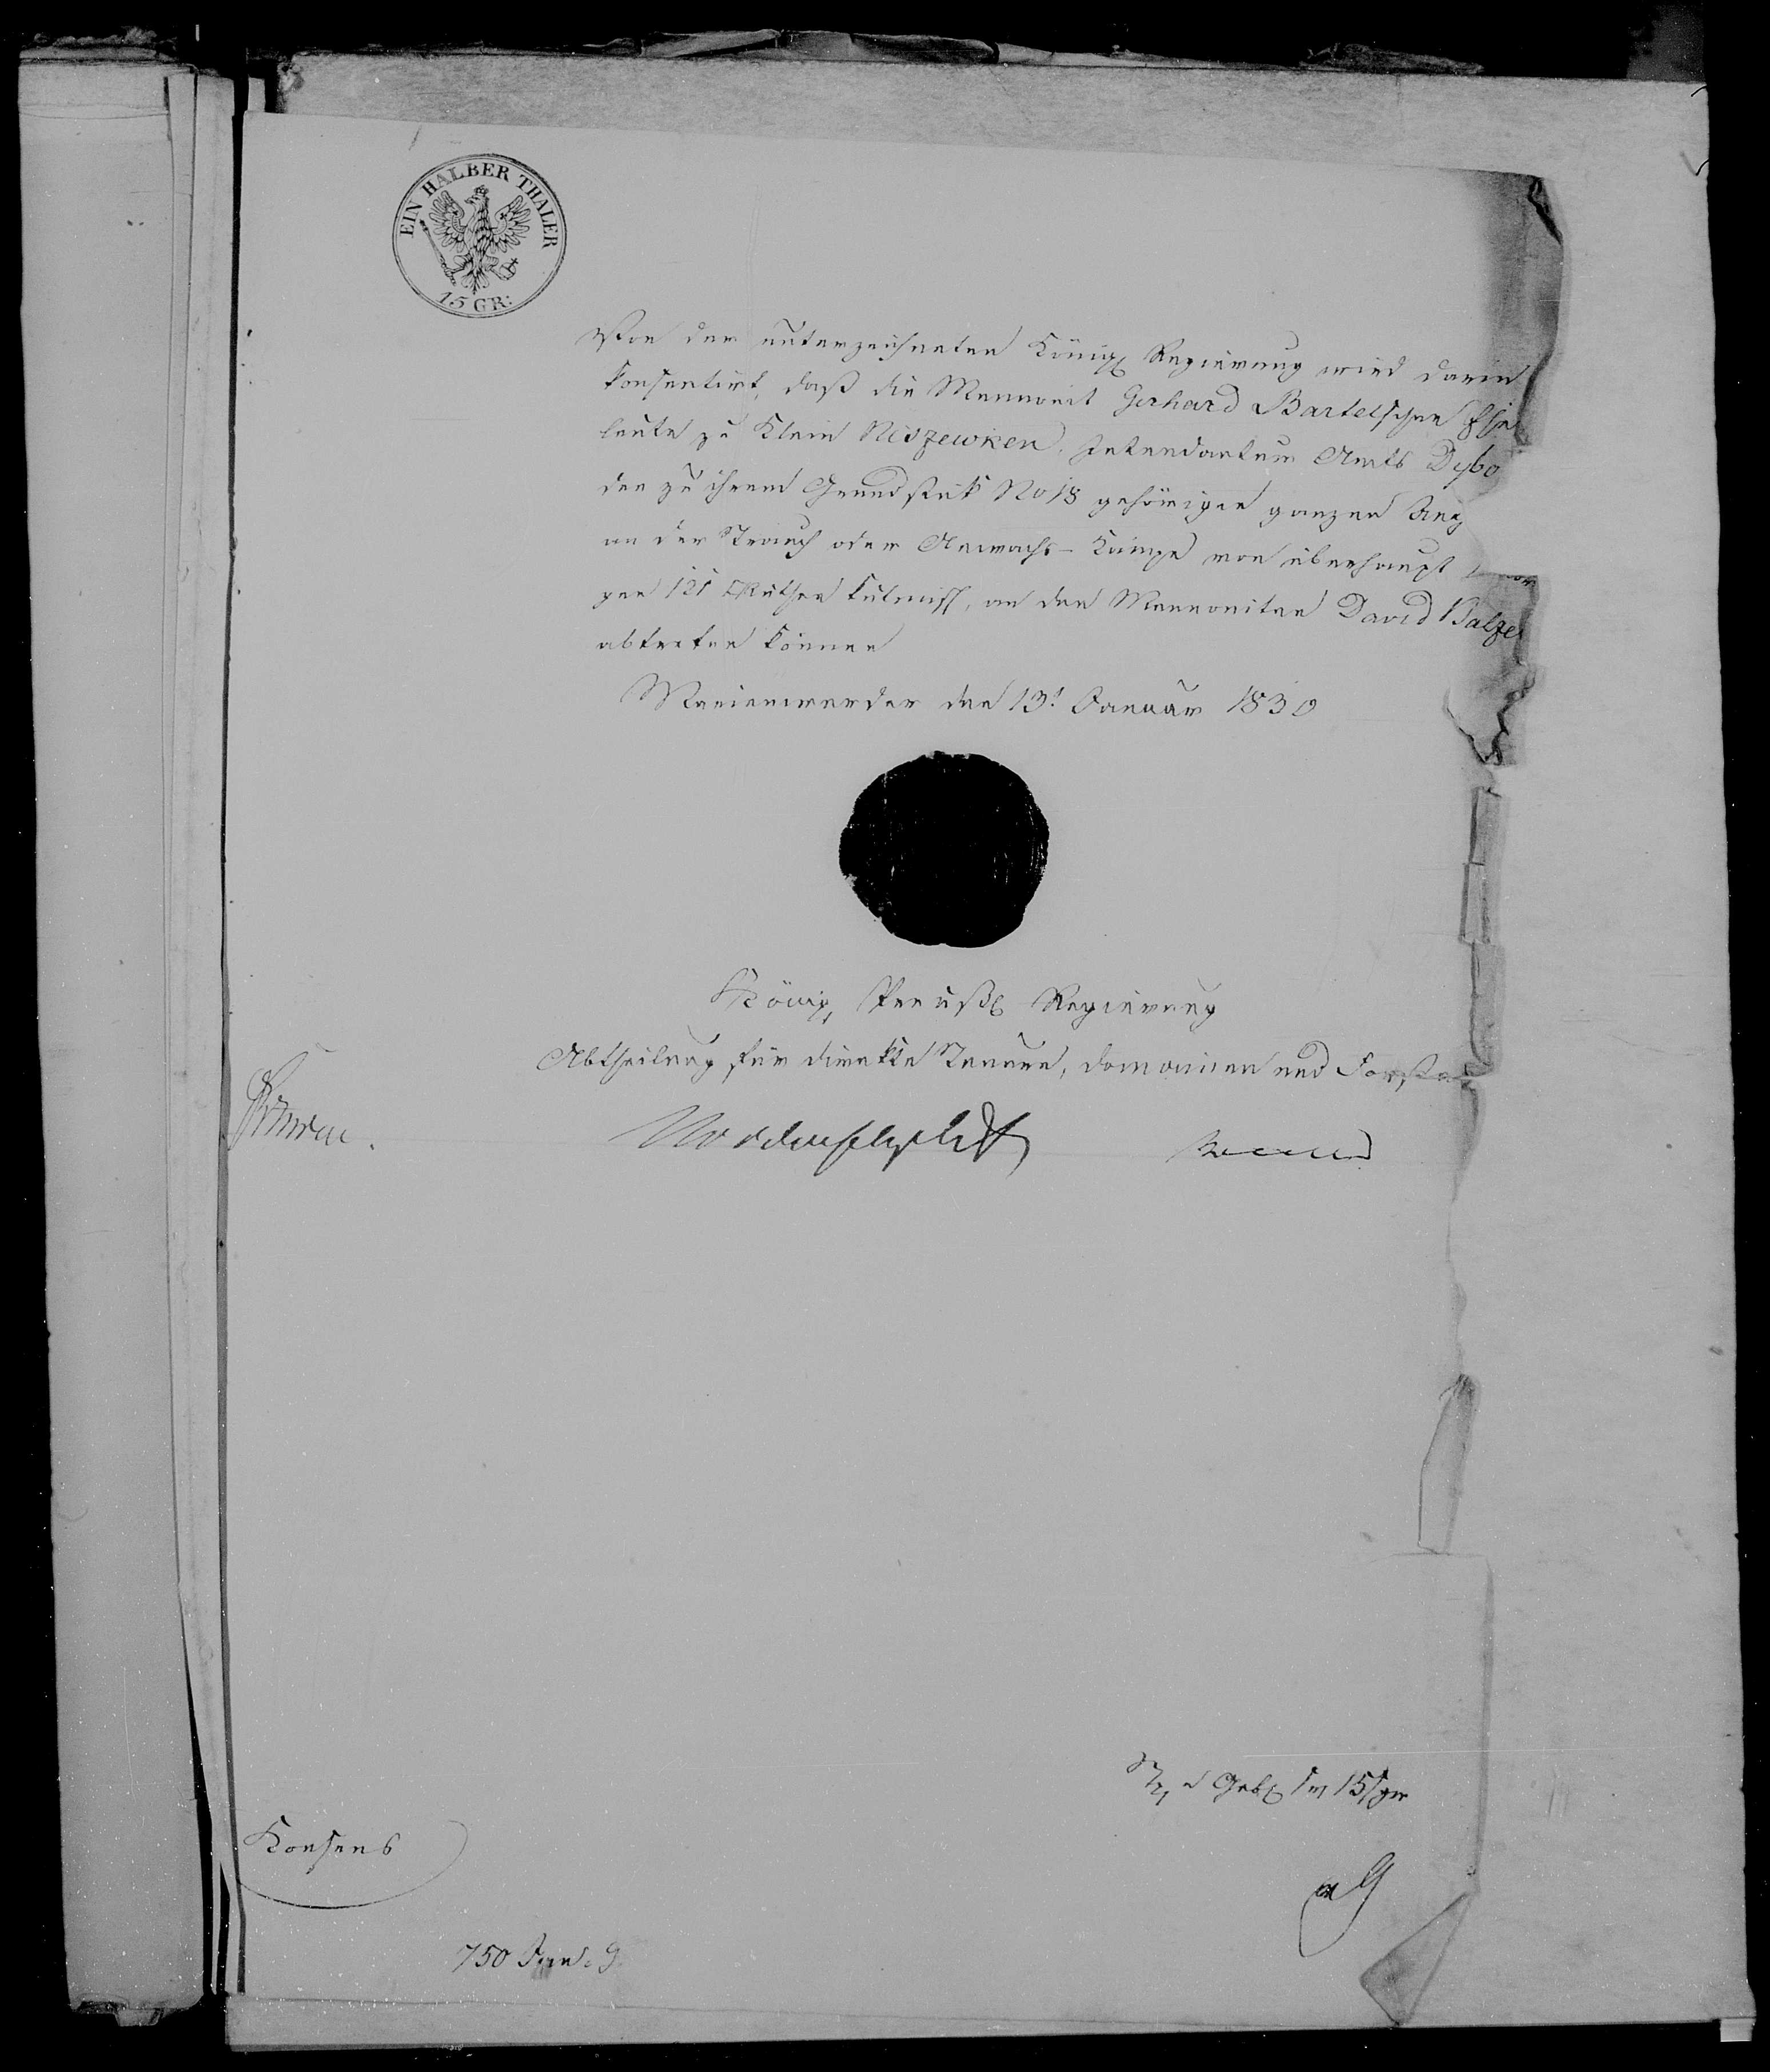 EIN HALBER THALER
15 GR:
Von der unterzeichneten Königl Regierung wird darin
konsentirt, daß die Mennonit Gerhard Bartelschen Ehe
leute zu Klein Niszewken, Intendantur Amts Dybo
den zu ihrem Grundstük No 18 gehörigen ganzen Ant
an der Strauch oder Anwachs-Kämpe von überhaupt
gen 121 □Ruthen kulmisch, an den Mennoniten David Balzer
abtreten können
Marienwerder den 13t Januar 1830
Königl Preußl Regierung
Abtheilung für direkte Steuern, Domainen und Forsten
Nordenflycht
15 sgr
Konsens
750 Jan. 9